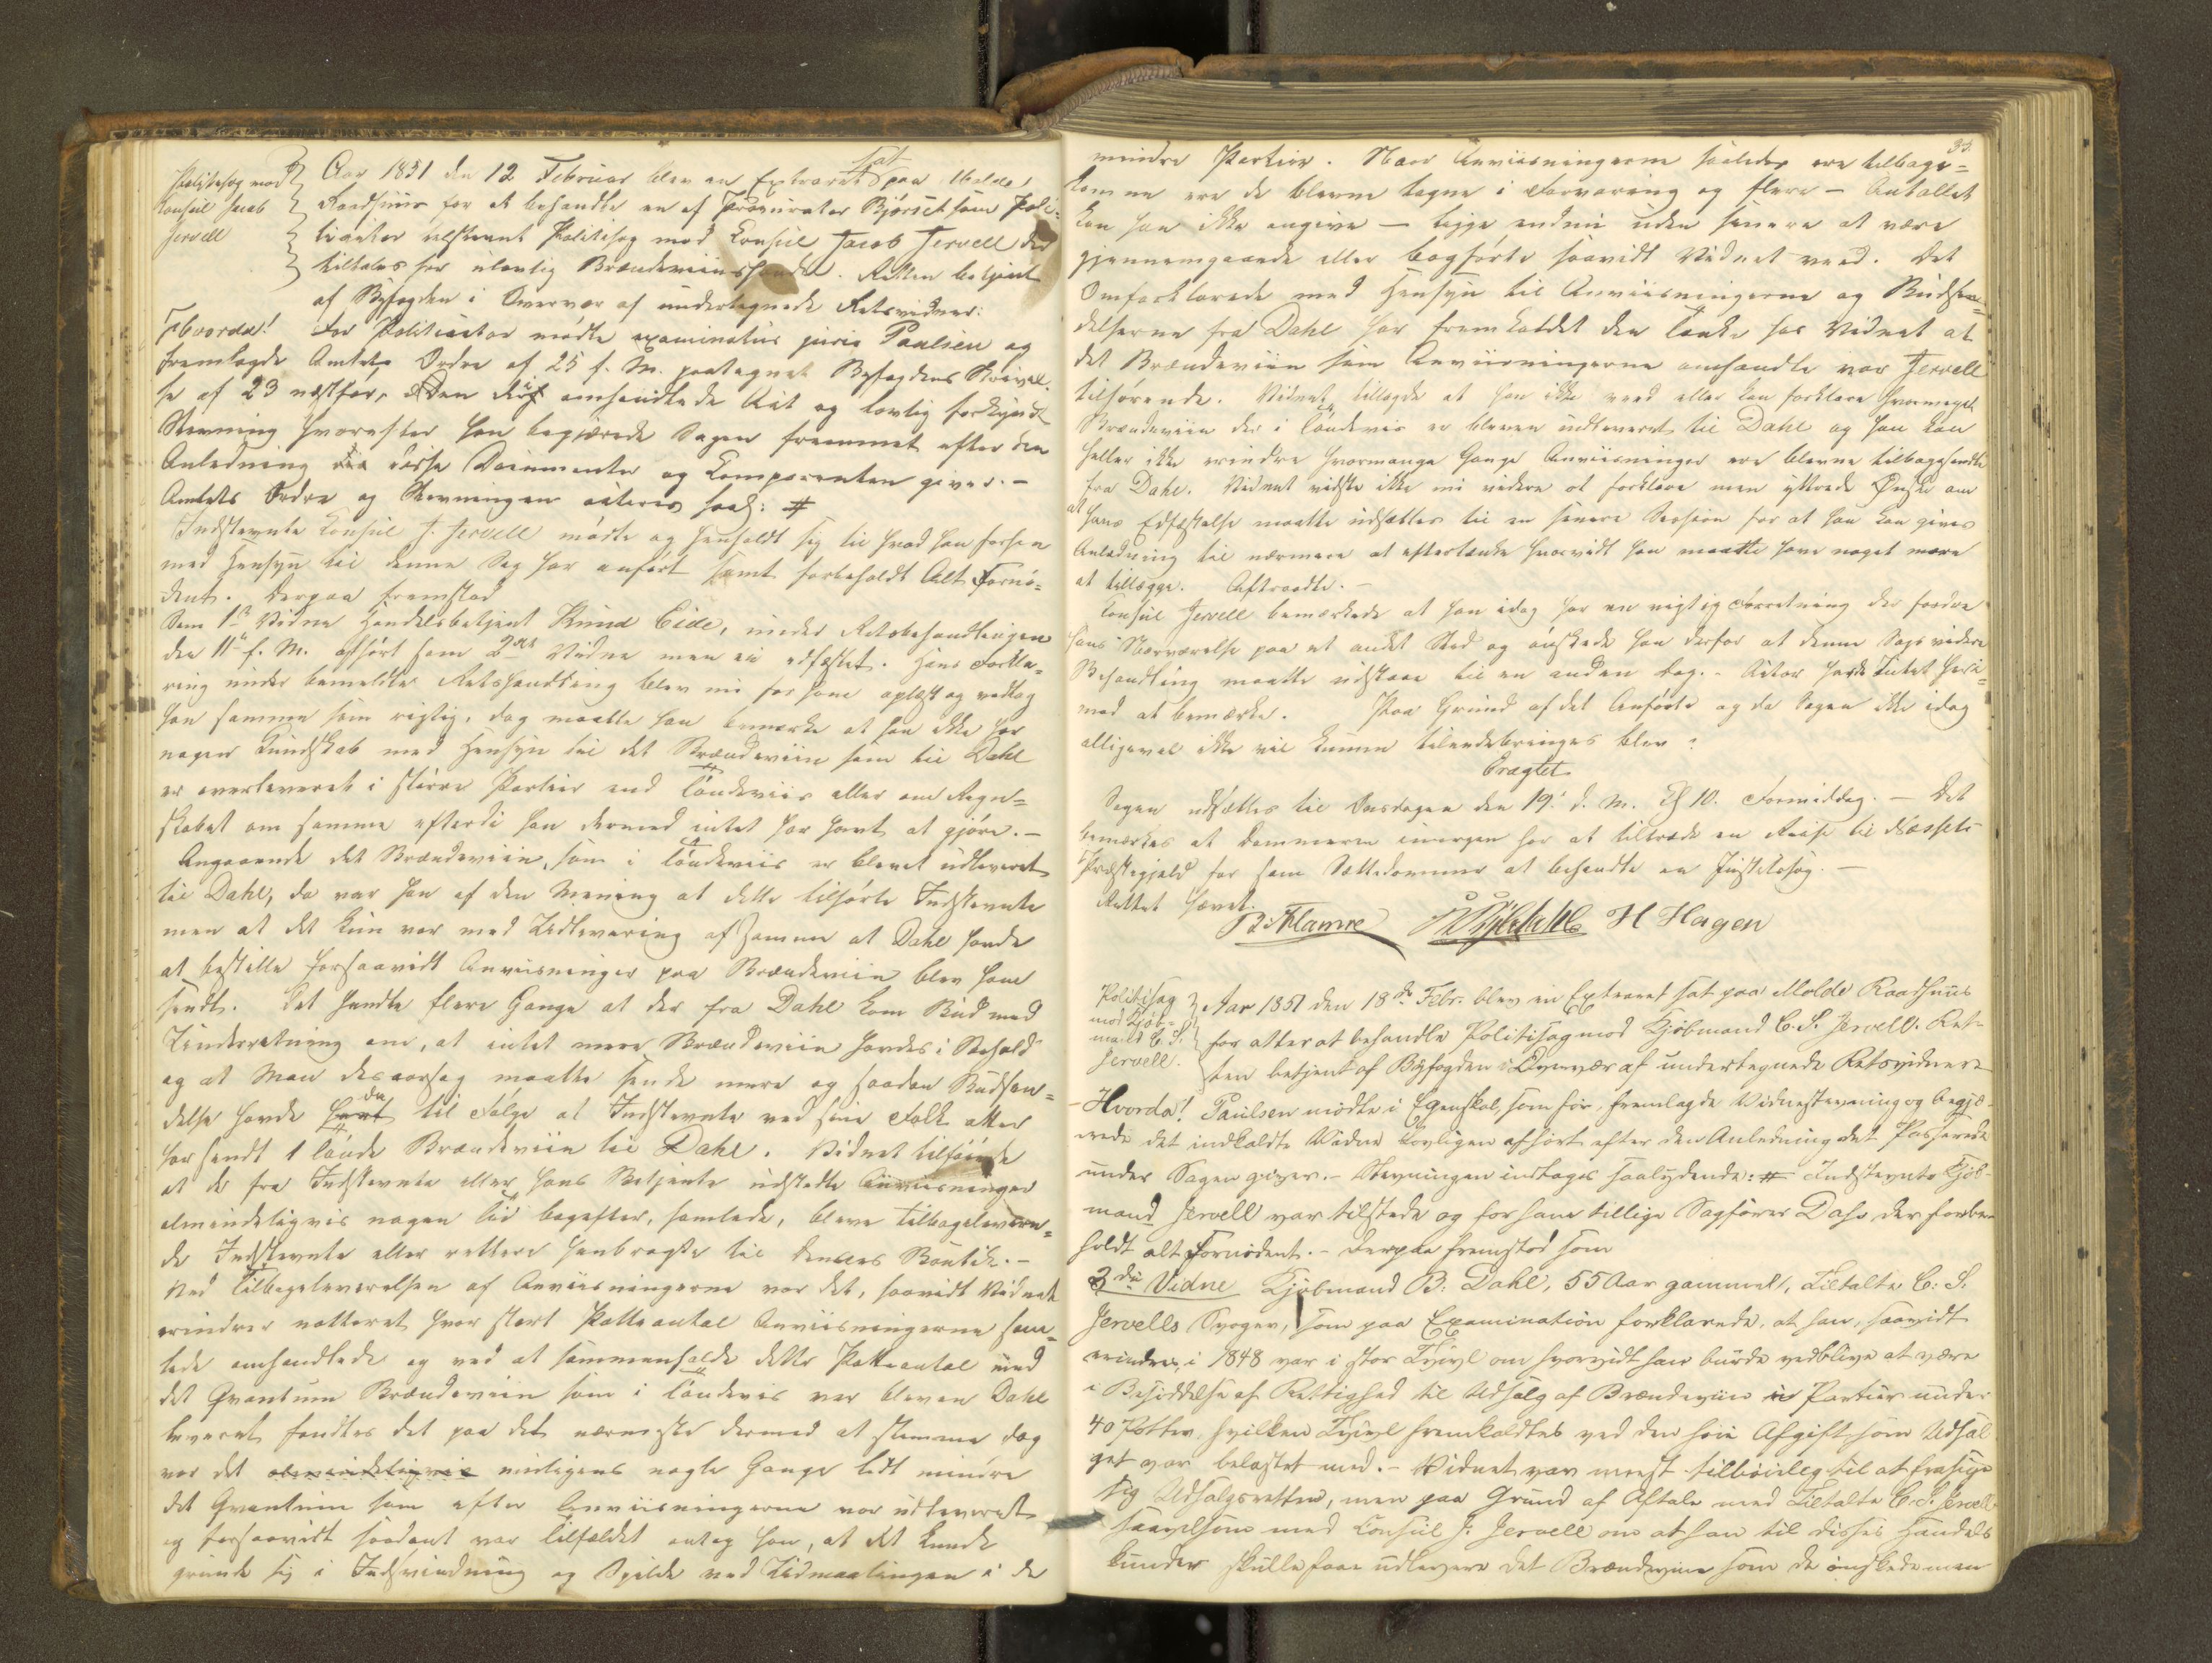 Politisag mod
Consul Jacob
Jervell
Aar 1851 den 12 Februar blev en Extraret sat paa Molde
Raadhuus for at behandle en af Procurator Bjørset som Poli-
tiactor udstævnt Politisag mod Consul Jacob Jervell der
tiltales for ulovlig Brændeviinshandel. Retten betjent
af Byfogden i Overvær af undertegnede Retsvidner:
Hvorda! For Politiactor mødte examinatus juris Paulsen og
fremlagde Amtets Ordre af 25 f. M. paategnet Byfogdens Skrivel-
se af 23 næstfør, den deri omhandlede Act og lovlig forkyndt
Stevning hvorefter han begjærede Sagen fremmet efter den
Anledning disse Documenter og Comparenten giver. –
Amtets Ordre og Stevningen acteres saal: #
Indstevnte Consul J. Jervell mødte og henholdt sig til hvad han forhen
med Hensyn til denne Sag har anført samt forbeholdt Alt Fornø-
dent. Derpaa fremstod
Som 1ste Vidne Handelsbetjent Knud Eide, under Retsbehandlingen
den 11te f. M. afhørt som 2det Vidne men ei edfæstet. Hans Forkla-
ring under bemeldte Retshandling blev nu for ham oplæst og vedtog
han samme som rigtig, dog maatte han bemærke at han ikke har
nogen Kundskab med Hensyn til det Brændeviin som til Dahl
er overleveret i større Partier end Tøndeviis eller om Regn-
skabet om samme efterdi han dermed intet har havt at gjøre. –
Angaaende det Brændeviin, som i Tøndeviis er blevet udleveret
til Dahl, da var han af den Mening at dette tilhørte Indstevnte
men at det kun var med Udlevering af samme at Dahl havde
at bestille forsaavidt Anviisninger paa Brændeviin blev ham
sendt. Det hendte flere Gange at der fra Dahl kom Bud med
Underretning om, at intet mere Brændeviin havdes i Behold
og at Man desaarsag maatte sende mere og saadan Budsen-
delse havde da til Følge at Indstevnte ved sine Folk atter
har sendt 1 Tønde Brændeviin til Dahl. Vidnet tilføiede
at de fra Indstevnte eller hans Betjente udstedte Anviisninger
almindeligviis nogen Tid bagefter, samlede, bleve tilbageleve-
de Indstevnte eller rettere henbragte til dennes Boutik. –
Ved Tilbageleverelsen af Anviisningerne var det, saavidt Vidnet
erindrer noteret hvor stort Potteantal Anviisningerne sam-
lede omhandlede og ved at sammenholde dette Potteantal med
det Qvantum Brændeviin som i Tøndevis var bleven Dahl
leveret fandtes det paa det nærmeste dermed at stemme dog
var det almindeligviis rimeligens nogle Gange lidt mindre
det Qvantum som efter Anviisningerne var udleveret
og forsaavidt saadant var Tilfældet antog han, at det kunde
grunde sig i Indsvinding og Spilde ved Udmaalingen i de
33.
mindre Partier. Naar Anviisningerne saaledes ere tilbage-
komne ere de blevne tagne i Forvaring og flere – Antallet
kan han ikke angive – ligge endnu uden senere at være
gjennemgaaede eller bogførte saavidt Vidnet veed. Det
Omforklarede med Hensyn til Anviisningerne og Budsen-
delserne fra Dahl har fremkaldet den Tanke hos Vidnet at
det Brændeviin som Anviisningerne omhandle var Jervell
tilhørende. Vidnet tillagde at han ikke veed eller kan forklare hvormeget
Brændeviin der i Tøndevis er bleven udleveret til Dahl og han kan
heller ikke erindre hvormange Gange Anviisninger ere blevne tilbagesendte
fra Dahl. Vidnet vidste ikke nu videre at forklare men yttrede Ønske om
at hans Edfæstelse maatte udsættes til en senere Session for at han kan gives
Anledning til nærmere at eftertænke hvorvidt han maatte have noget mere
at tillægge. Aftraadte. –
Consul Jervell bemærkede at han idag har en vigtig Forretning der fordre
hans Nærværelse paa et andet Sted og ønskede han derfor at denne Sags videre
Behandling maatte udstaae til en anden Dag. – Actor havde Intet heri-
mod at bemærke. Paa Grund af det Anførte og da Sagen ikke idag
alligevel ikke vil kunne tilendebringes blev:
Eragtet
Sagen udsættes til Onsdagen den 19de d. M. Kl 10. Formiddag. – Det
bemærkes at Dommeren imorgen har at tiltræde en Reise til Næssets
Præstegjeld for som Sættedommer at behandle en Justitssag. –
Rettet hævet.
B. Flamme H Hagen
Politisag
mod Kjøb-
mand C. S.
Jervell.
Aar 1851 den 18de Febr. blev en Extraret sat paa Molde Raadhuus
for atter at behandle Politisag mod Kjøbmand C. S. Jervell. Ret-
ten betjent af Byfogden i Overvær af undertegnede Retsvidner
– Hvorda! Paulsen mødte i Egenskab, som før, fremlagde Vidnestevning og begjæ-
rede det indkaldte Vidne lovligen afhørt efter den Anledning det Passerede
under Sagen giver. – Stevningen indtages saalydende: # Indstevnte Kjøb-
mand Jervell var tilstede og for ham tillige Sagfører Dahl der forbe-
holdt alt Fornødent. – Derpaa fremstod som
3die Vidne Kjøbmand B. Dahl, 55 Aar gammel, Tiltalte C: S.
Jervells Svoger, som paa Examination forklarede, at han, saavidt
erindres i 1848 var i stor Tvivl om hvorvidt han burde vedblive at være
i Besiddelse af Rettighed til Udsalg af Brændeviin i Partier under
40 Potter, hvilken Tvivl fremkaldtes ved den høie Afgift som Udsal
get var belastet med. – Vidnet var meest tilbøielig til at frasige
sig Udsalgsretten, men paa Grund af Aftale med Tiltalte C. S. Jervell
saavelsom med Consul J. Jervell om at han til disses Handels
kunder skulle faae udlevere det Brændeviin som de ønskede men